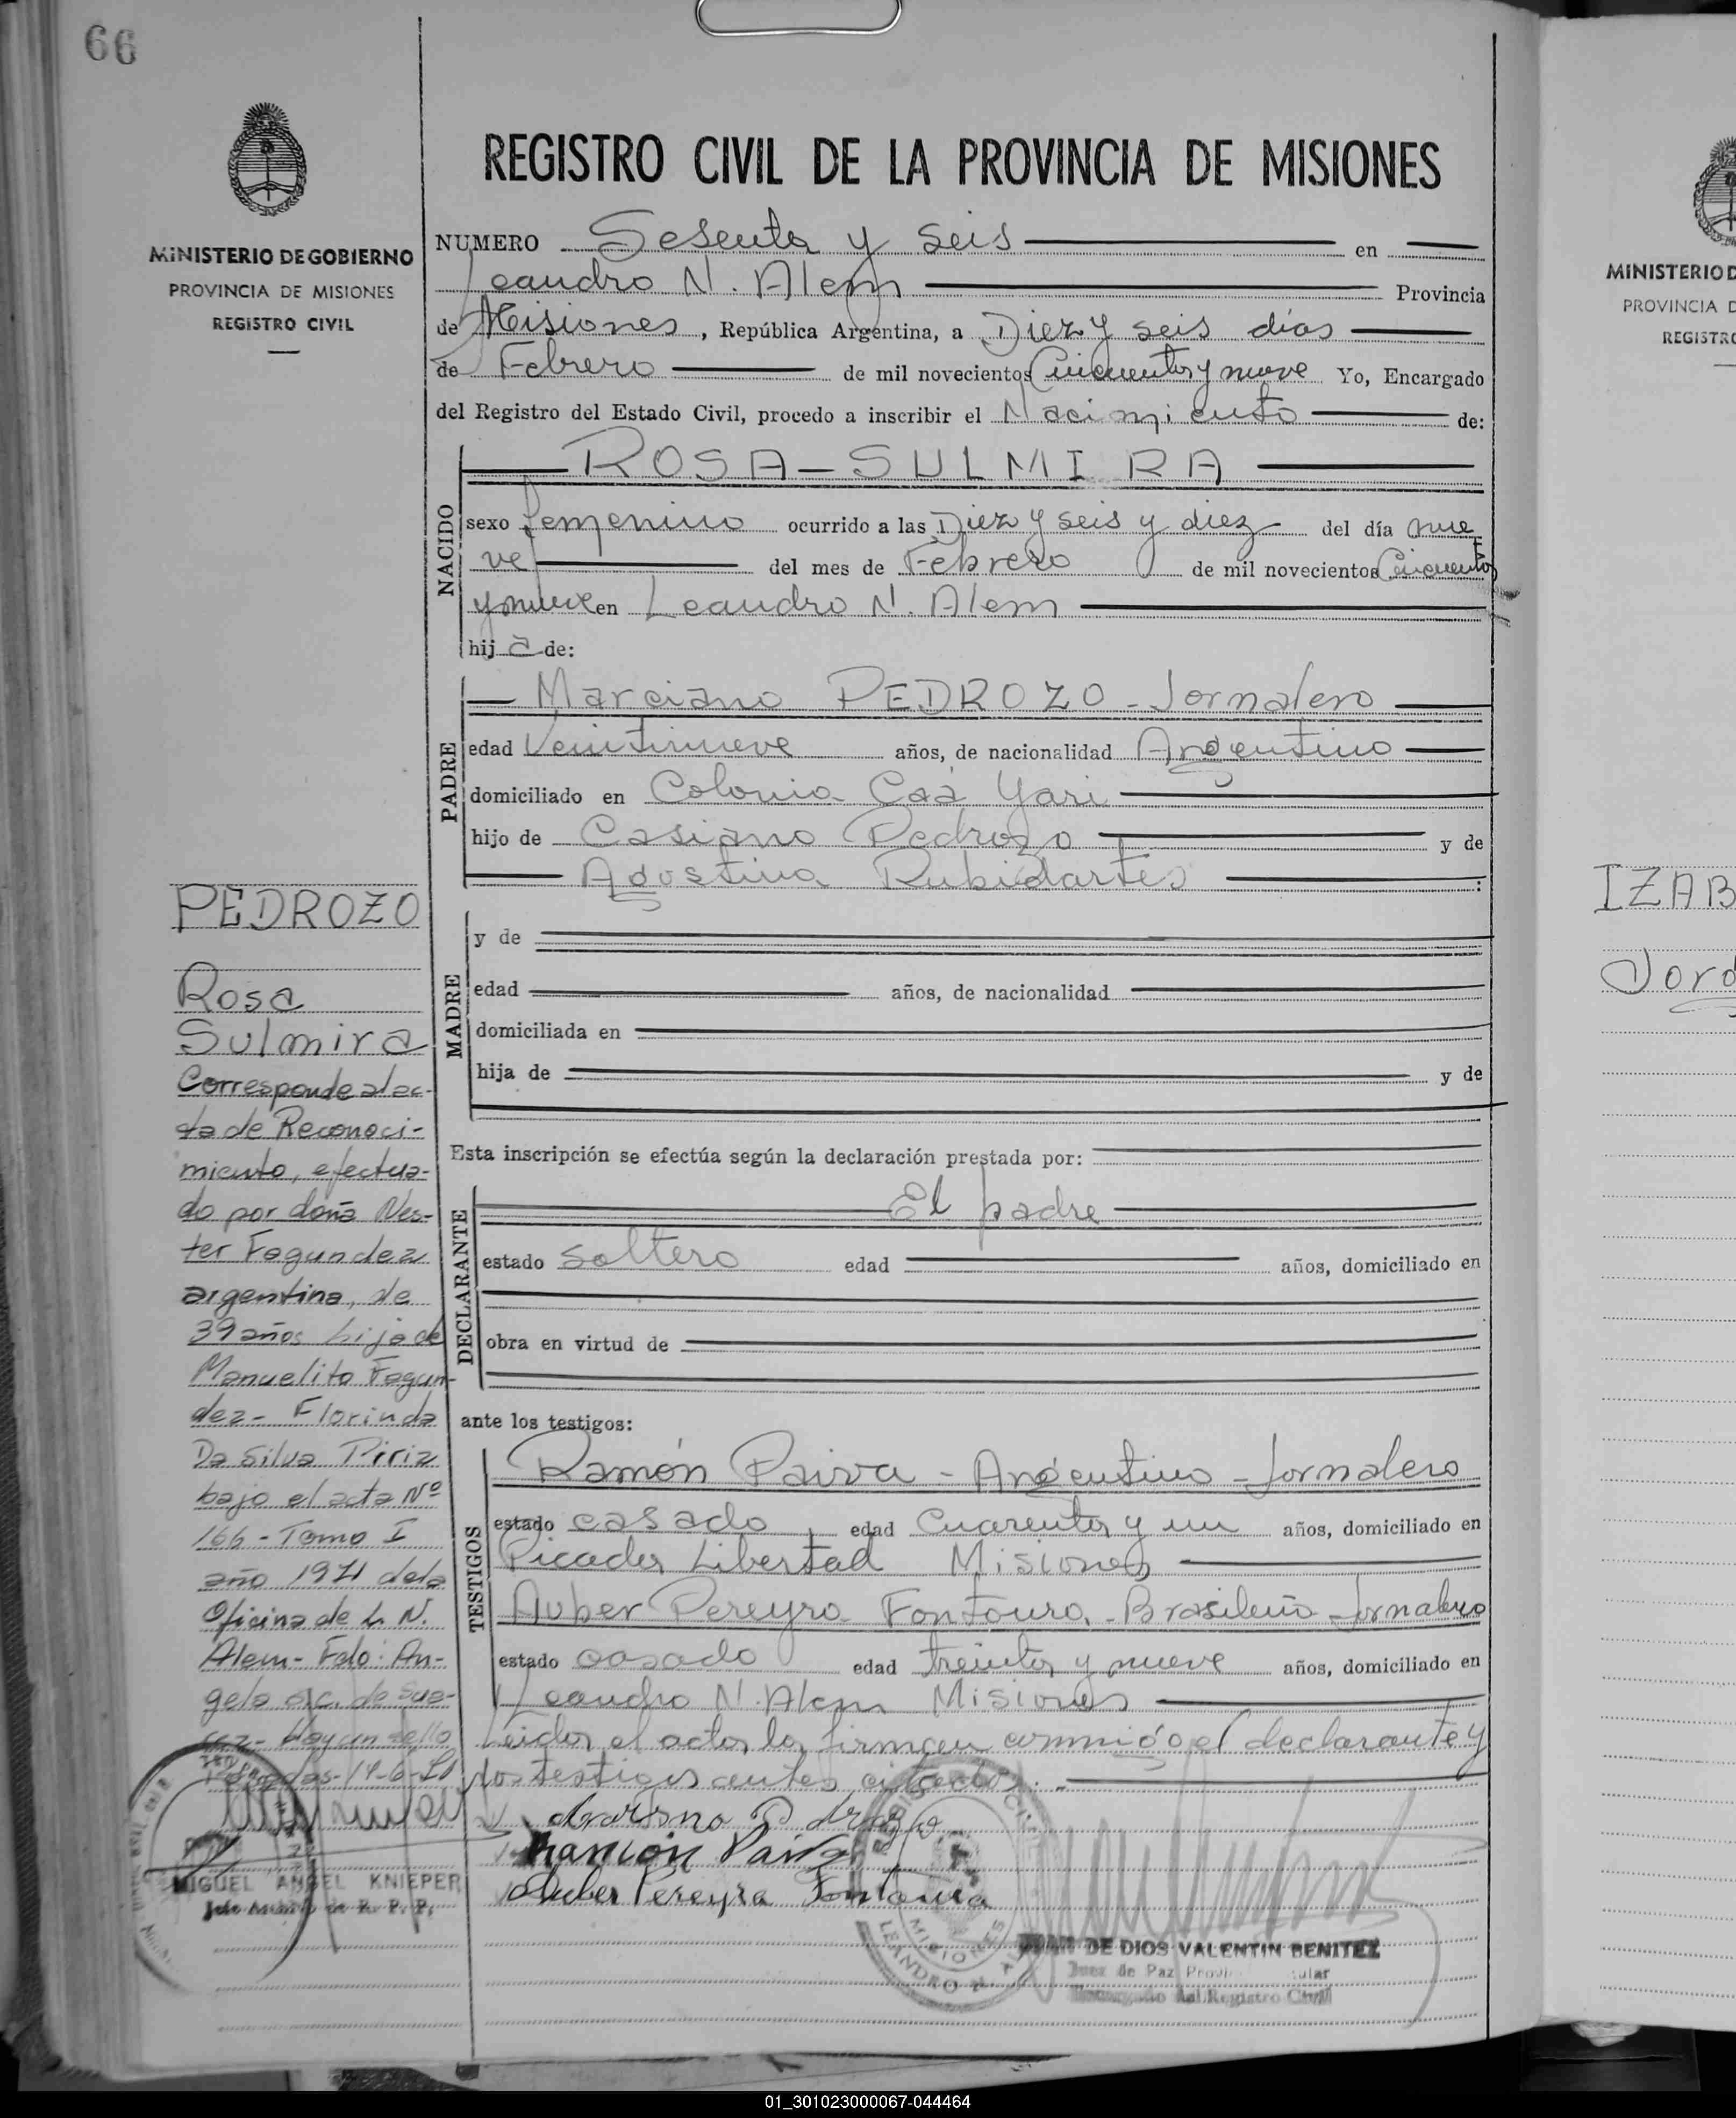 66
MINISTERIO DE GOBIERNO
PROVINCIA DE MISIONES
REGISTRO CIVIL
REGISTRO CIVIL DE LA PROVINCIA DE MISIONES
NUMERO Sesenta y seis en
Leandro N. Alem Provincia
de Misiones, República Argentina, a Diez y seis días
de Febrero de mil novecientos Cincuenta y nueve Yo, Encargado
del Registro del Estado Civil, procedo a inscribir el Nacimiento de:
NACIDO
ROSA-SULMIRA
sexo femenino ocurrido a las Diez y seis y diez del día nue
ve del mes de Febrero de mil novecientos Cincuenta
y nueve en Leandro N. Alem
hij a de:
PADRE
Marciano PEDROZO - Jornalero
edad Veintinueve años, de nacionalidad Argentino
domiciliado en Colonia Caá Yari
hijo de Casiano Pedrozo y de
Agustina Rubidartes :
MADRE
y de
edad años, de nacionalidad
domiciliada en
hija de y de
Esta inscripción se efectúa según la declaración prestada por:
DECLARANTE
El padre
estado soltero edad años, domiciliado en
obra en virtud de
ante los testigos:
TESTIGOS
Ramón Paiva - Argentino - Jornalero
estado casado edad Cuarenta y un años, domiciliado en
Picada Libertad Misiones
Auber Pereyra Fontoura - Brasileño - Jornalero
estado casado edad treinta y nueve años, domiciliado en
Leandro N. Alem Misiones
Leida el acta la firman conmigo el declarante y
los testigos antes citados.-
Ramón Paiva
Auber Pereyra Fontoura
MISIONES
LEANDRO N. A
JUAN DE DIOS VALENTIN BENITEZ
Juez de Paz
Encargado del Registro Civil
PEDROZO
Rosa
Sulmira
Corresponde al ac-
ta de Reconoci-
miento, efectua-
do por doña Nes-
ter Fagundez
argentina, de
39 años hija de
Manuelito Fagun-
dez - Florinda
Da Silva Piriz
bajo el acta Nº
166 - Tomo I
año 1971 dela
Oficina de L. N.
Alem - Fdo: An-
gela de Sua-
rez - Hay un sello
MIGUEL ANGEL KNIEPER
Jefe Archivo de R. P. P.
MINISTERIO D
PROVINCIA D
REGISTRO
IZAB
Jord
01_301023000067-044464